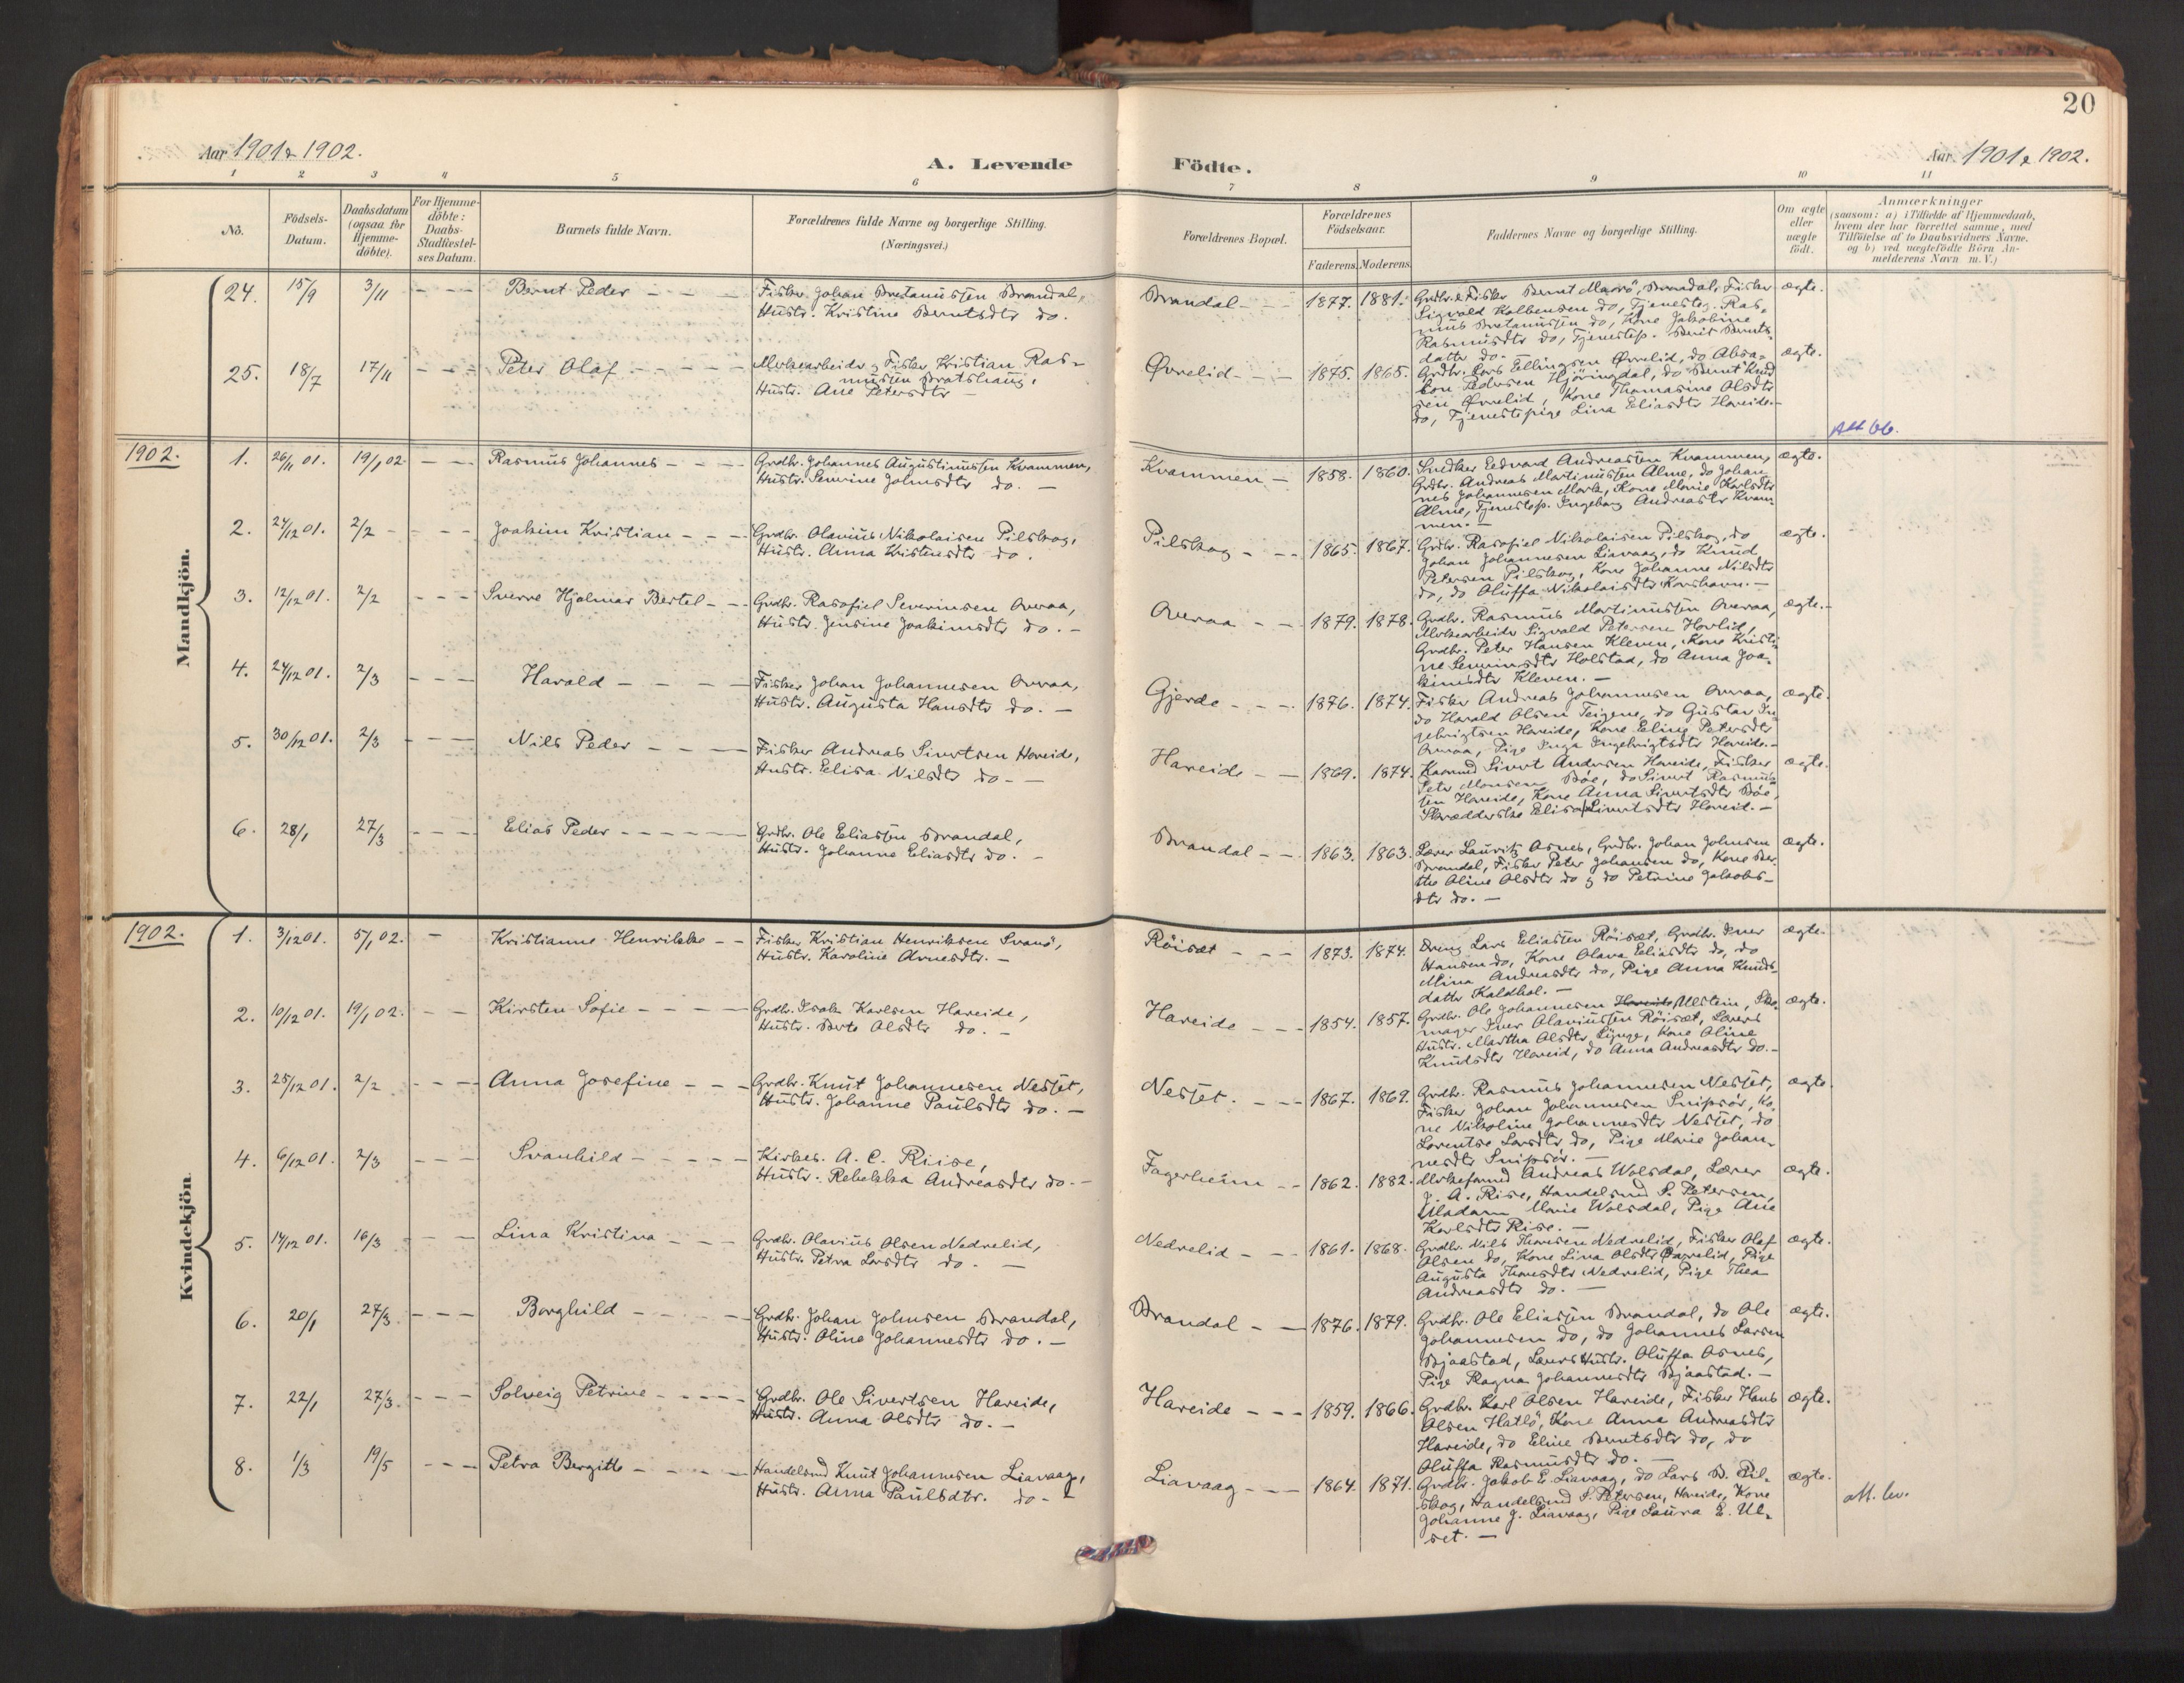 20
Aar 1901 & 1902.
A. Levende Födte.
Aar 1901 & 1902.
1 2 3 4 5 6 7 8 9 10 11
No.
Födsels-Datum.
Daabsdatum (ogsaa for Hjemme-döbte).
For Hjemme-döbte: Daabs-Stadfæstel-ses Datum.
Barnets fulde Navn.
Forældrenes fulde Navne og borgerlige Stilling. (Næringsvei.)
Forældrenes Bopæl.
Forældrenes Födselsaar.
Faderens. Moderens.
Faddernes Navne og borgerlige Stilling.
Om ægte eller uægte födt.
Anmærkninger
(saasom: a) i Tilfælde af Hjemmedaab, hvem der har forrettet samme, med Tilföielse af to Daabsvidners Navne, og b) ved uægtefödte Börn An-melderens Navn m. V.)
Mandkjön.
24. 15/9 3/11 - - - Bernt Peder - - -
Fisker Johan Bretanussen Brandal,
Hustr. Kristine Berntsdtr do.
Brandal - - 1877. 1881.
Grdbr. & Fisker Bernt Marø, Brandal, Fisker
Sigvald Kolbensen do, Tjenesteg. Ras-
mus Bretanussen do, Kone Jakobine
Rasmusdtr do, Tjenestep. Berit Bernts-
datter do.
ægte.
25. 18/7 17/11 - - - Peter Olaf - - - -
Merkearbeider & Fisker Kristian Ras-
mussen Bratshaug,
Hustr. Ane Petersdtr -
Øvrelid - - 1875. 1865.
Grdbr. Lars Ellingsen Øvrelid, do Absa-
lon Pedersen Hjöringdal, do Bernt Knud
sen Øvrelid, Kone Thomasine Olsdtr
do, Tjenestepige Lina Eliasdtr Hareide.-
ægte.
Att 66.
1902.
1. 26/11 01. 19/1 02 - - - Rasmus Johannes - - -
Grdbr. Johannes Augustinussen Kvammen,
Hustr. Severine Johnsdtr do. -
Kvammen - 1858. 1860.
Snedker Edvard Andreassen Kvammen,
Grdbr. Andreas Martinussen Alme, do Johan-
nes Johannesen Mork, Kone Marie Karlsdtr
Alme, Tjenestep. Ingeborg Andreasdtr Kvam-
men. -
ægte.
2. 24/12 01. 2/2 - - - - Joakim Kristian - - -
Grdbr. Olavius Nikolaisen Pilskog,
Hustr. Anna Kristensdtr do.
Pilskog - - - 1865. 1867.
Grdbr. Rasofiel Nikolaisen Pilskog, do
Johan Johannesen Liavaag, do Knud
Petersen Pilskog, Kone Johanne Nilsdtr
do, do Oluffa Nikolaisdtr Korshavn. -
ægte.
3. 12/12 01. 2/2 - - - Sverre Hjalmar Bertel - -
Grdbr. Rasofiel Severinsen Overaa,
Hustr. Jensine Joakimsdtr do. -
Overaa - - 1879. 1878.
Grdbr. Rasmus Martinussen Overaa,
Merkearbeider Sigvald Petersen Hovlid,
Grdbr. Peter Hansen Kleven, Kone Kristi-
ne Severinsdtr Holstad, do Anna Joa-
kimsdtr Kleven. -
ægte. -
4. 24/12 01. 2/3 - - - Harald - - - -
Fisker Johan Johannesen Overaa,
Hustr. Augusta Hansdtr do. -
Gjerde - - - 1876. 1874.
Fisker Andreas Johannesen Overaa,
do Harald Olsen Teigene, do Gustav In-
gebrigtsen Hareide, Kone Eline Petersdtr
Overaa, Pige Inga Ingebrigtsdtr Hareide. -
ægte.
5. 30/12 01. 2/3 - - - Nils Peder - - -
Fisker Andreas Sivertsen Hareide,
Hustr. Elisa Nilsdtr do - -
Hareide - - 1869. 1874.
Kaarmd Sivert Andersen Hareide, Fisker
Peter Monsen Böe, do Sivert Rasmus-
sen Hareide, Kone Anna Sivertsdtr Böe,
Skrædderske Elisa Sivertsdtr Hareid. -
ægte.
6. 28/1 27/3 - - - Elias Peder - - - - -
Grdbr. Ole Eliassen Brandal,
Hustr. Johanne Eliasdtr do. -
Brandal - - 1863. 1863.
Lærer Lauritz Asnes, Grdbr. Johan Johnsen
Brandal, Fisker Peter Johansen do, Kone Ber-
the Oline Olsdtr do & do Petrine Jakobs-
dtr do. -
ægte.
Kvindekjön.
1902.
1. 3/12 01. 5/1 02. - Kristianne Henrikke - -
Fisker Kristian Henriksen Svanö,
Hustr. Karoline Arnesdtr. -
Röisæt - - - 1873. 1874.
Dreng Lars Eliassen Röisæt, Grdbr. Iver
Hansen do, Kone Olava Eliasdtr do, do
Mina Andreasdtr do, Pige Anna Knuds-
datter Kaldhol. -
ægte.
2. 10/12 01. 19/1 02. - - Kirsten Sofie - - - -
Grdbr. Isak Karlsen Hareide,
Hustr. Berte Olsdtr do. -
Hareide - - - 1854. 1857.
Grdbr. Ole Johannesen Hareide, Ulstein, Sko-
mager Iver Olaviussen Röisæt, Lærers
Hustr. Martha Olsdtr Lynge, Kone Oline
Knudsdtr Hareid, do Anna Andreasdtr do. -
ægte.
3. 25/12 01. 2/2 - - - Anna Josefine - - -
Grdbr. Knut Johannesen Nesset,
Hustr. Johanne Paulsdtr do. -
Nesset. - - - 1867. 1869.
Grdbr. Rasmus Johannesen Nesset,
Fisker Johan Johannesen Snipsör, Ko-
ne Nikoline Johannesdtr Nesset, do
Lorentse Larsdtr do, Pige Marie Johan-
nesdtr Snipsör. -
ægte.
4. 6/12 01. 2/3 - - - Svanhild - - - - -
Kirkes. A. C. Riise,
Hustr. Rebekka Andreasdtr do. -
Fagerheim - - 1862. 1882.
Merkeformd Andreas Wolsdal, Lærer
J. A. Rise, Handelsmd S. Petersen,
Madam Marie Wolsdal, Pige Ane
Karlsdtr Rise. -
ægte.
5. 14/12 01. 16/3 - - Lina Kristina - - -
Grdbr. Olavius Olsen Nedrelid,
Hustr. Petra Larsdtr do. -
Nedrelid - - - 1861. 1868.
Grdbr. Nils Thoresen Nedrelid, Fisker Olaf
Olsen do, Kone Lina Olsdtr Øvrelid, Pige
Augusta Thoresdtr Nedrelid, Pige Thea
Andreasdtr do. -
ægte.
6. 20/1 27/3. - - - Borghild - - - - -
Grdbr. Johan Johnsen Brandal,
Hustr. Oline Johannesdtr do. -
Brandal - - 1876. 1879.
Grdbr. Ole Eliassen Brandal, do Ole
Johannesen do, do Johannes Larsen
Bjaastad, Lærers Hustr. Oluffa Asnes,
Pige Ragna Johannesdtr Bjaastad. -
ægte.
7. 22/1 27/3. - - - Solveig Petrine - - - -
Grdbr. Ole Sivertsen Hareide,
Hustr. Anna Olsdtr do. -
Hareide - - - 1859. 1866.
Grdbr. Karl Olsen Hareide, Fisker Hans
Olsen Hatlö, Kone Anna Andreasdtr
Hareide, do Eline Berntsdtr do, do
Oluffa Rasmusdtr do. -
ægte.
8. 1/3 19/5 - - - Petra Bergitte - - - -
Handelsmd Knut Johannesen Liavaag,
Hustr. Anna Paulsdtr. do - -
Liavaag - - - 1864. 1871.
Grdbr. Jakob E. Liavaag, do Lars B. Pil-
skog, Handelsmd S. Petersen, Hareide, Kone
Johanne J. Liavaag, Pige Laura E. Ul-
set. -
ægte.
att. lev.